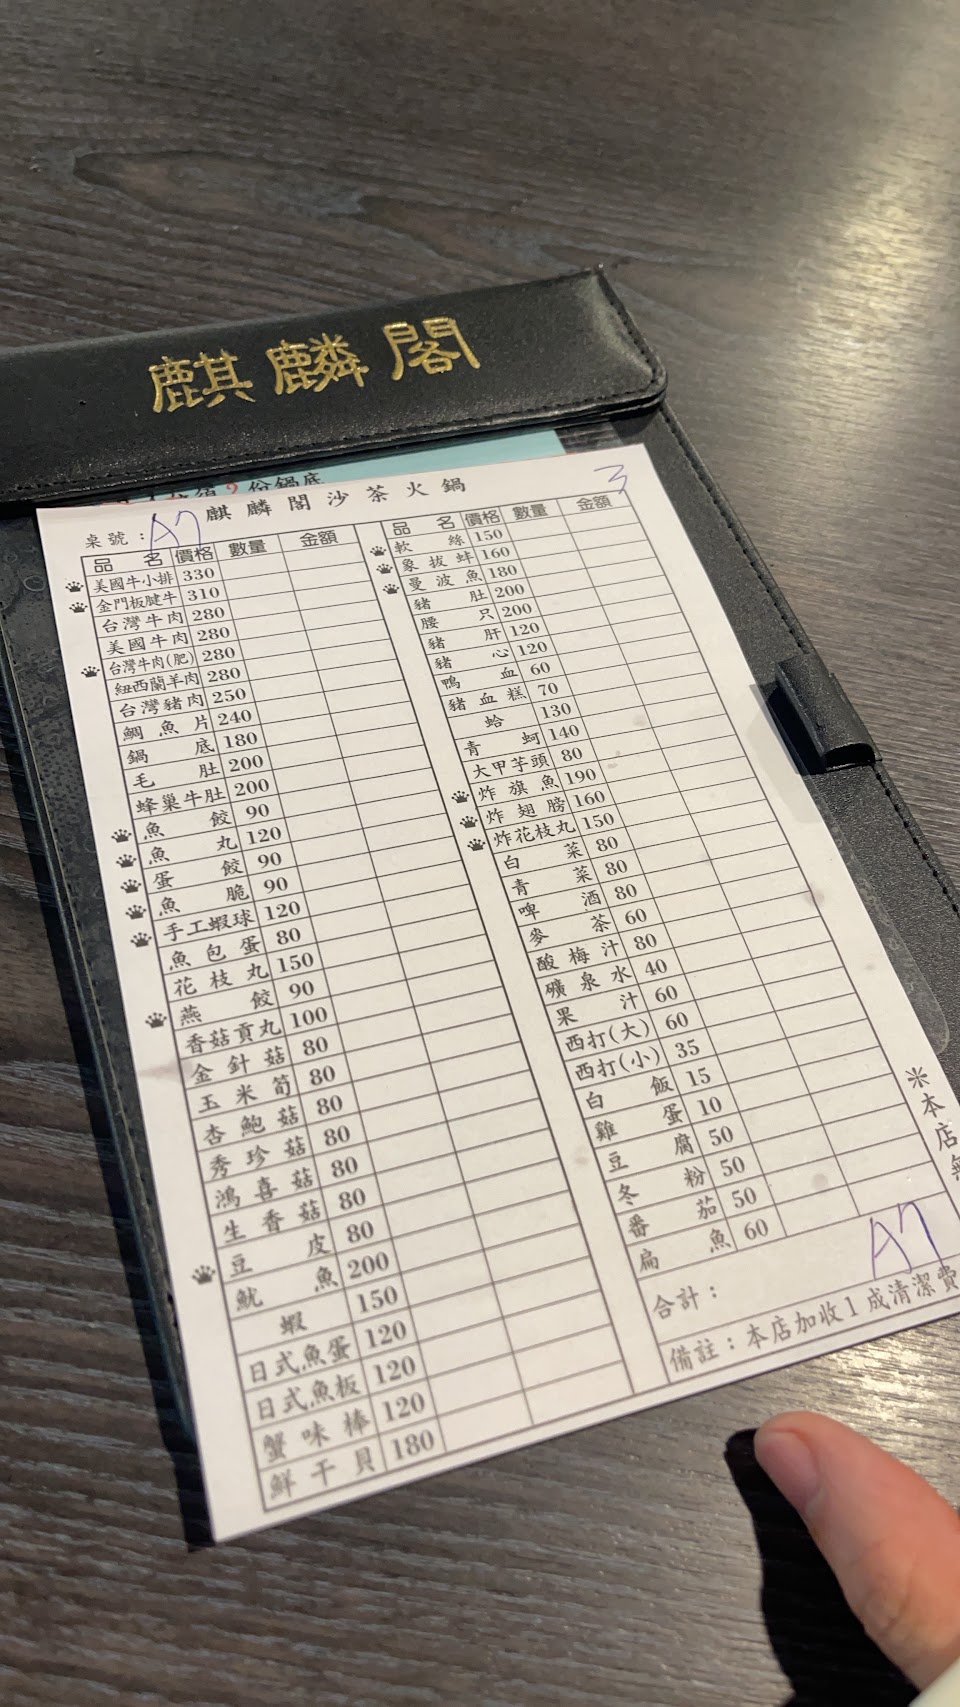 麒麟閣
2份鍋底
麒麟閣沙茶火鍋
3
桌號：A7
品名 價格 數量 金額
美國牛小排 330
金門板腱牛 310
台灣牛肉 280
美國牛肉 280
台灣牛肉(肥) 280
紐西蘭羊肉 280
台灣豬肉 250
鯛魚片 240
鍋底 180
毛肚 200
蜂巢牛肚 200
魚餃 90
魚丸 120
蛋餃 90
魚脆 90
手工蝦球 120
魚包蛋 80
花枝丸 150
燕餃 90
香菇貢丸 100
金針菇 80
玉米筍 80
杏鮑菇 80
秀珍菇 80
鴻喜菇 80
生香菇 80
豆皮 80
魷魚 200
蝦 150
日式魚蛋 120
日式魚板 120
蟹味棒 120
鮮干貝 180
品名 價格 數量 金額
軟絲 150
象拔蚌 160
曼波魚 180
豬肚 200
腰只 200
豬肝 120
豬心 120
鴨血 60
豬血糕 70
蛤 130
青蚵 140
大甲芋頭 80
炸旗魚 190
炸翅膀 160
炸花枝丸 150
白菜 80
青菜 80
啤酒 80
麥茶 60
酸梅汁 80
礦泉水 40
果汁 60
西打(大) 60
西打(小) 35
白飯 15
雞蛋 10
豆腐 50
冬粉 50
番茄 50
扁魚 60
合計：
A7
備註：本店加收1成清潔費
※本店無